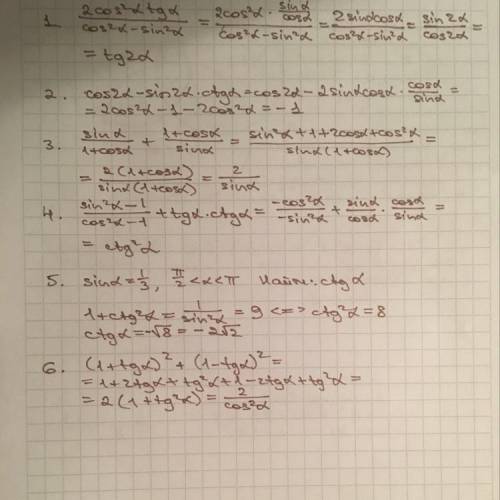 1. (2cos²α tgα)/(cos²α - sin²α) = (2cos²α · sinα/cosα)/(cos²α - sin²α) = (2sinαcosα)/(cos²α - sin²α) = sin2α/cos2α =
= tg2α
2. cos2α - sin2α · ctgα = cos2α - 2sinαcosα · cosα/sinα =
= 2cos²α - 1 - 2cos²α = -1
3. sinα/(1+cosα) + (1+cosα)/sinα = (sin²α + 1 + 2cosα + cos²α)/(sinα(1+cosα)) =
= 2(1+cosα)/(sinα(1+cosα)) = 2/sinα
4. (sin²α - 1)/(cos²α - 1) + tgα · ctgα = -cos²α/-sin²α + sinα/cosα · cosα/sinα =
= ctg²α
5. sinα = 1/3, π/2 < α < π Найти: ctgα
1 + ctg²α = 1/sin²α = 9 <=> ctg²α = 8
ctgα = -√8 = -2√2
6. (1+tgα)² + (1-tgα)² =
= 1 + 2tgα + tg²α + 1 - 2tgα + tg²α =
= 2(1+tg²α) = 2/cos²α